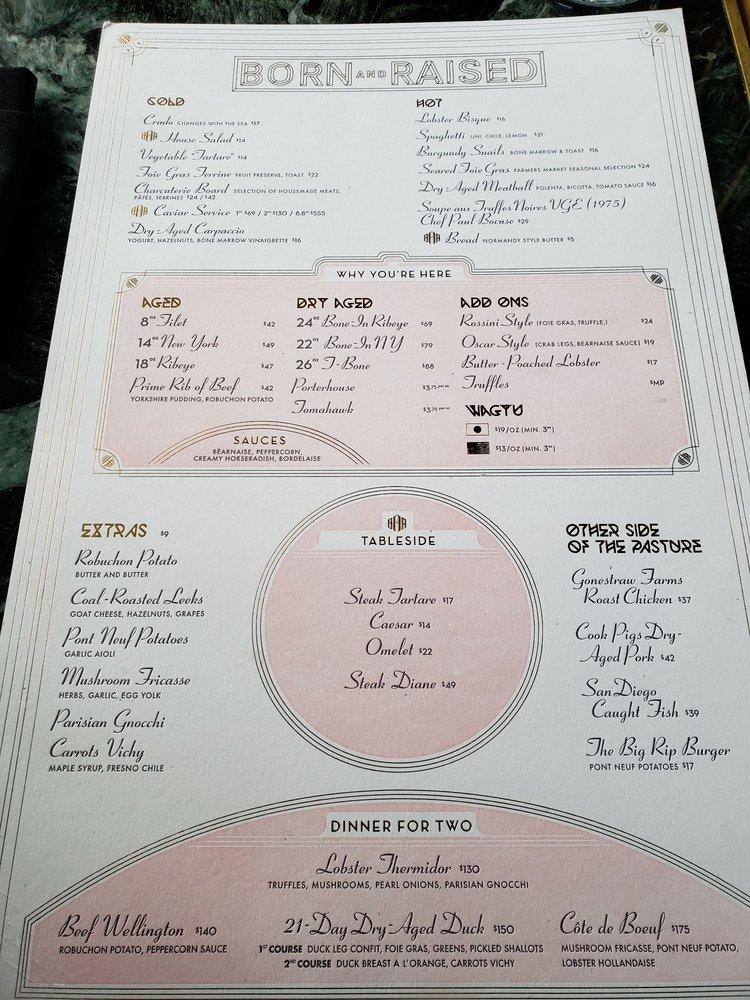 BORN AND RAISED
COLD
Crudo CHANGES WITH THE SEA $17
House Salad $14
Vegetable "Tartare" $14
Foie Gras Terrine FRUIT PRESERVE, TOAST $22
Charcuterie Board SELECTION OF HOUSEMADE MEATS,
PÂTES, TERRINES $24 / $42
Caviar Service 1oz $69 / 2oz $130 / 8.8oz $555
Dry-Aged Carpaccio
YOGURT, HAZELNUTS, BONE MARROW VINAIGRETTE $16
HOT
Lobster Bisque $16
Spaghetti UNI, CHILE, LEMON $21
Burgundy Snails BONE MARROW & TOAST $16
Seared Foie Gras FARMERS MARKET SEASONAL SELECTION $24
Dry-Aged Meatball POLENTA, RICOTTA, TOMATO SAUCE $16
Soupe aux Truffes Noires VGE (1975)
Chef Paul Bocuse $29
Bread NORMANDY STYLE BUTTER $5
WHY YOU'RE HERE
AGED
8oz Filet $42
14oz New York $49
18oz Ribeye $47
Prime Rib of Beef $42
YORKSHIRE PUDDING, ROBUCHON POTATO
SAUCES
BÉARNAISE, PEPPERCORN,
CREAMY HORSERADISH, BORDELAISE
DRY AGED
24oz Bone-In Ribeye $69
22oz Bone-In NY $79
26oz T-Bone $88
Porterhouse $3.75
Tomahawk $3.75
ADD ONS
Rossini Style (FOIE GRAS, TRUFFLE,) $24
Oscar Style (CRAB LEGS, BEARNAISE SAUCE) $19
Butter-Poached Lobster $17
Truffles $MP
WAGYU
$19/OZ (MIN. 3oz)
$13/OZ (MIN. 3oz)
EXTRAS $9
Robuchon Potato
BUTTER AND BUTTER
Coal-Roasted Leeks
GOAT CHEESE, HAZELNUTS, GRAPES
Pont Neuf Potatoes
GARLIC AIOLI
Mushroom Fricasse
HERBS, GARLIC, EGG YOLK
Parisian Gnocchi
Carrots Vichy
MAPLE SYRUP, FRESNO CHILE
BAR
TABLESIDE
Steak Tartare $17
Caesar $14
Omelet $22
Steak Diane $49
OTHER SIDE
OF THE PASTURE
Gonestraw Farms
Roast Chicken $37
Cook Pigs Dry-
Aged Pork $42
San Diego
Caught Fish $39
The Big Rip Burger
PONT NEUF POTATOES $17
DINNER FOR TWO
Lobster Thermidor $130
TRUFFLES, MUSHROOMS, PEARL ONIONS, PARISIAN GNOCCHI
Beef Wellington $140
ROBUCHON POTATO, PEPPERCORN SAUCE
21-Day Dry-Aged Duck $150
1ST COURSE DUCK LEG CONFIT, FOIE GRAS, GREENS, PICKLED SHALLOTS
2ND COURSE DUCK BREAST A L'ORANGE, CARROTS VICHY
Côte de Boeuf $175
MUSHROOM FRICASSE, PONT NEUF POTATO,
LOBSTER HOLLANDAISE